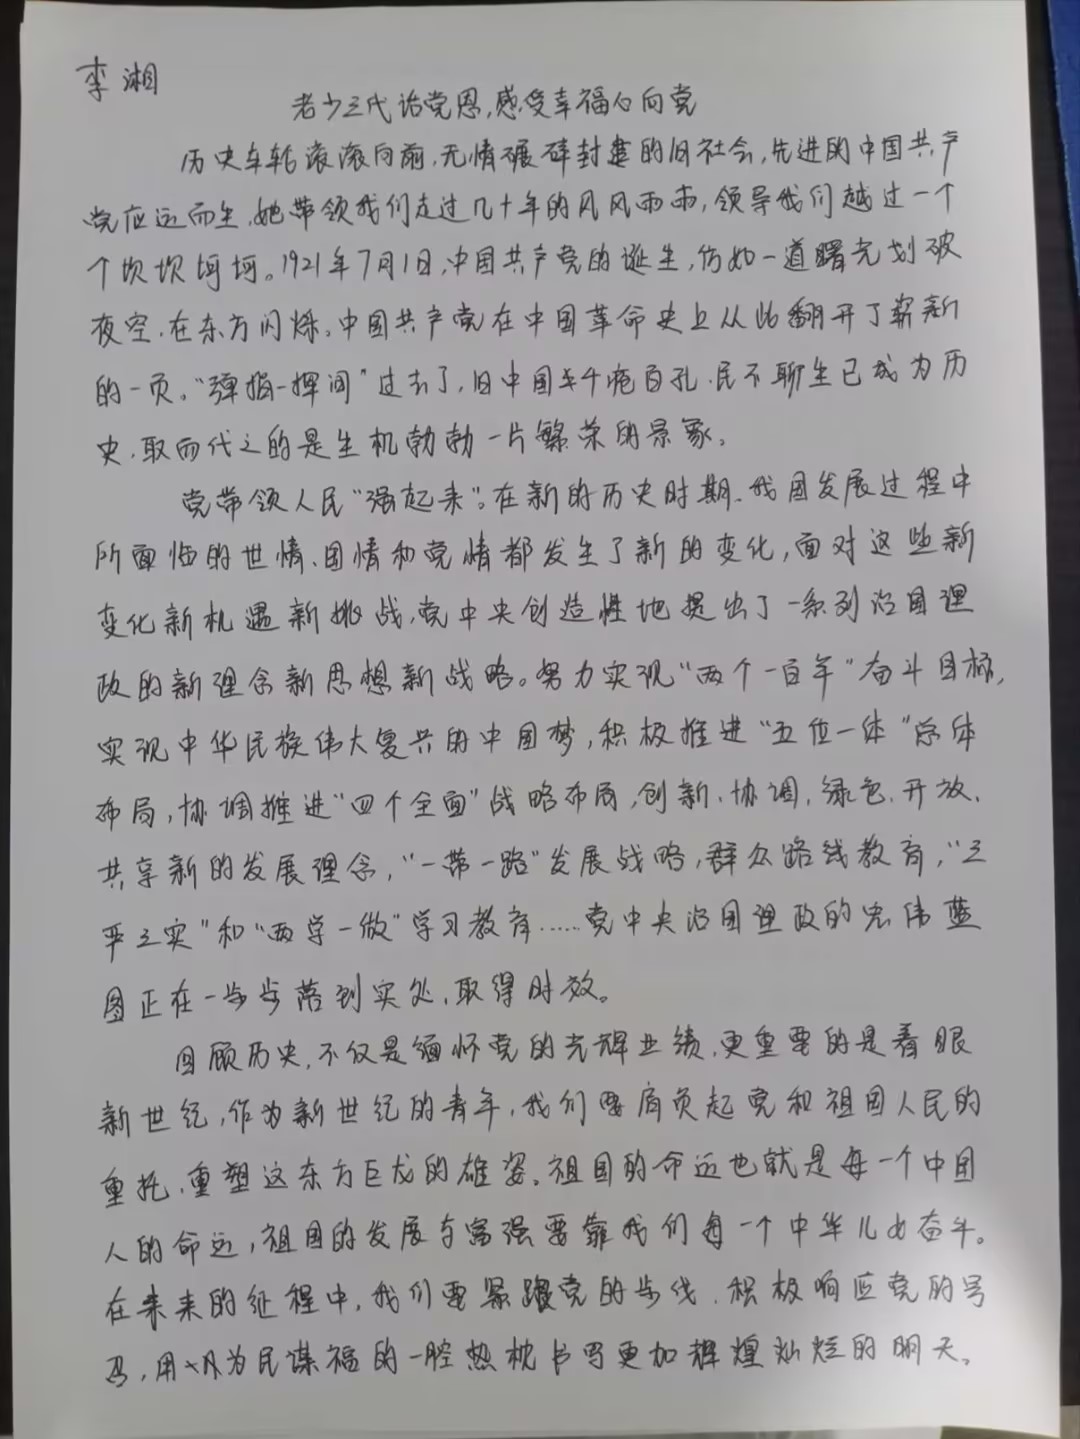 李湘
老少三代话党恩,感受幸福心向党
历史车轮滚滚向前,无情碾碎封建的旧社会,先进的中国共产
党应运而生,她带领我们走过几十年的风风雨雨,领导我们越过一个
个坎坎坷坷。1921年7月1日,中国共产党的诞生,仿如一道曙光划破
夜空,在东方闪烁。中国共产党在中国革命史上从此翻开了崭新
的一页。“弹指一挥间”过去了,旧中国千疮百孔、民不聊生已成为历
史,取而代之的是生机勃勃一片繁荣的景象。
党带领人民“强起来”。在新的历史时期,我国发展过程中
所面临的世情、国情和党情都发生了新的变化,面对这些新
变化新机遇新挑战,党中央创造性地提出了一系列治国理
政的新理念新思想新战略。努力实现“两个一百年”奋斗目标,
实现中华民族伟大复兴的中国梦,积极推进“五位一体”总体
布局,协调推进“四个全面”战略布局,创新、协调,绿色、开放、
共享新的发展理念,“一带一路”发展战略,群众路线教育,“三
严三实”和“两学一做”学习教育……党中央治国理政的宏伟蓝
图正在一步步落到实处,取得时效。
回顾历史,不仅是缅怀党的光辉业绩,更重要的是着眼
新世纪,作为新世纪的青年,我们要肩负起党和祖国人民的
重托,重塑这东方巨龙的雄姿。祖国的命运也就是每一个中国
人的命运,祖国的发展与富强要靠我们每一个中华儿女奋斗。
在未来的征程中,我们要紧跟党的步伐,积极响应党的号
召,用为民谋福的一腔热枕书写更加辉煌灿烂的明天。